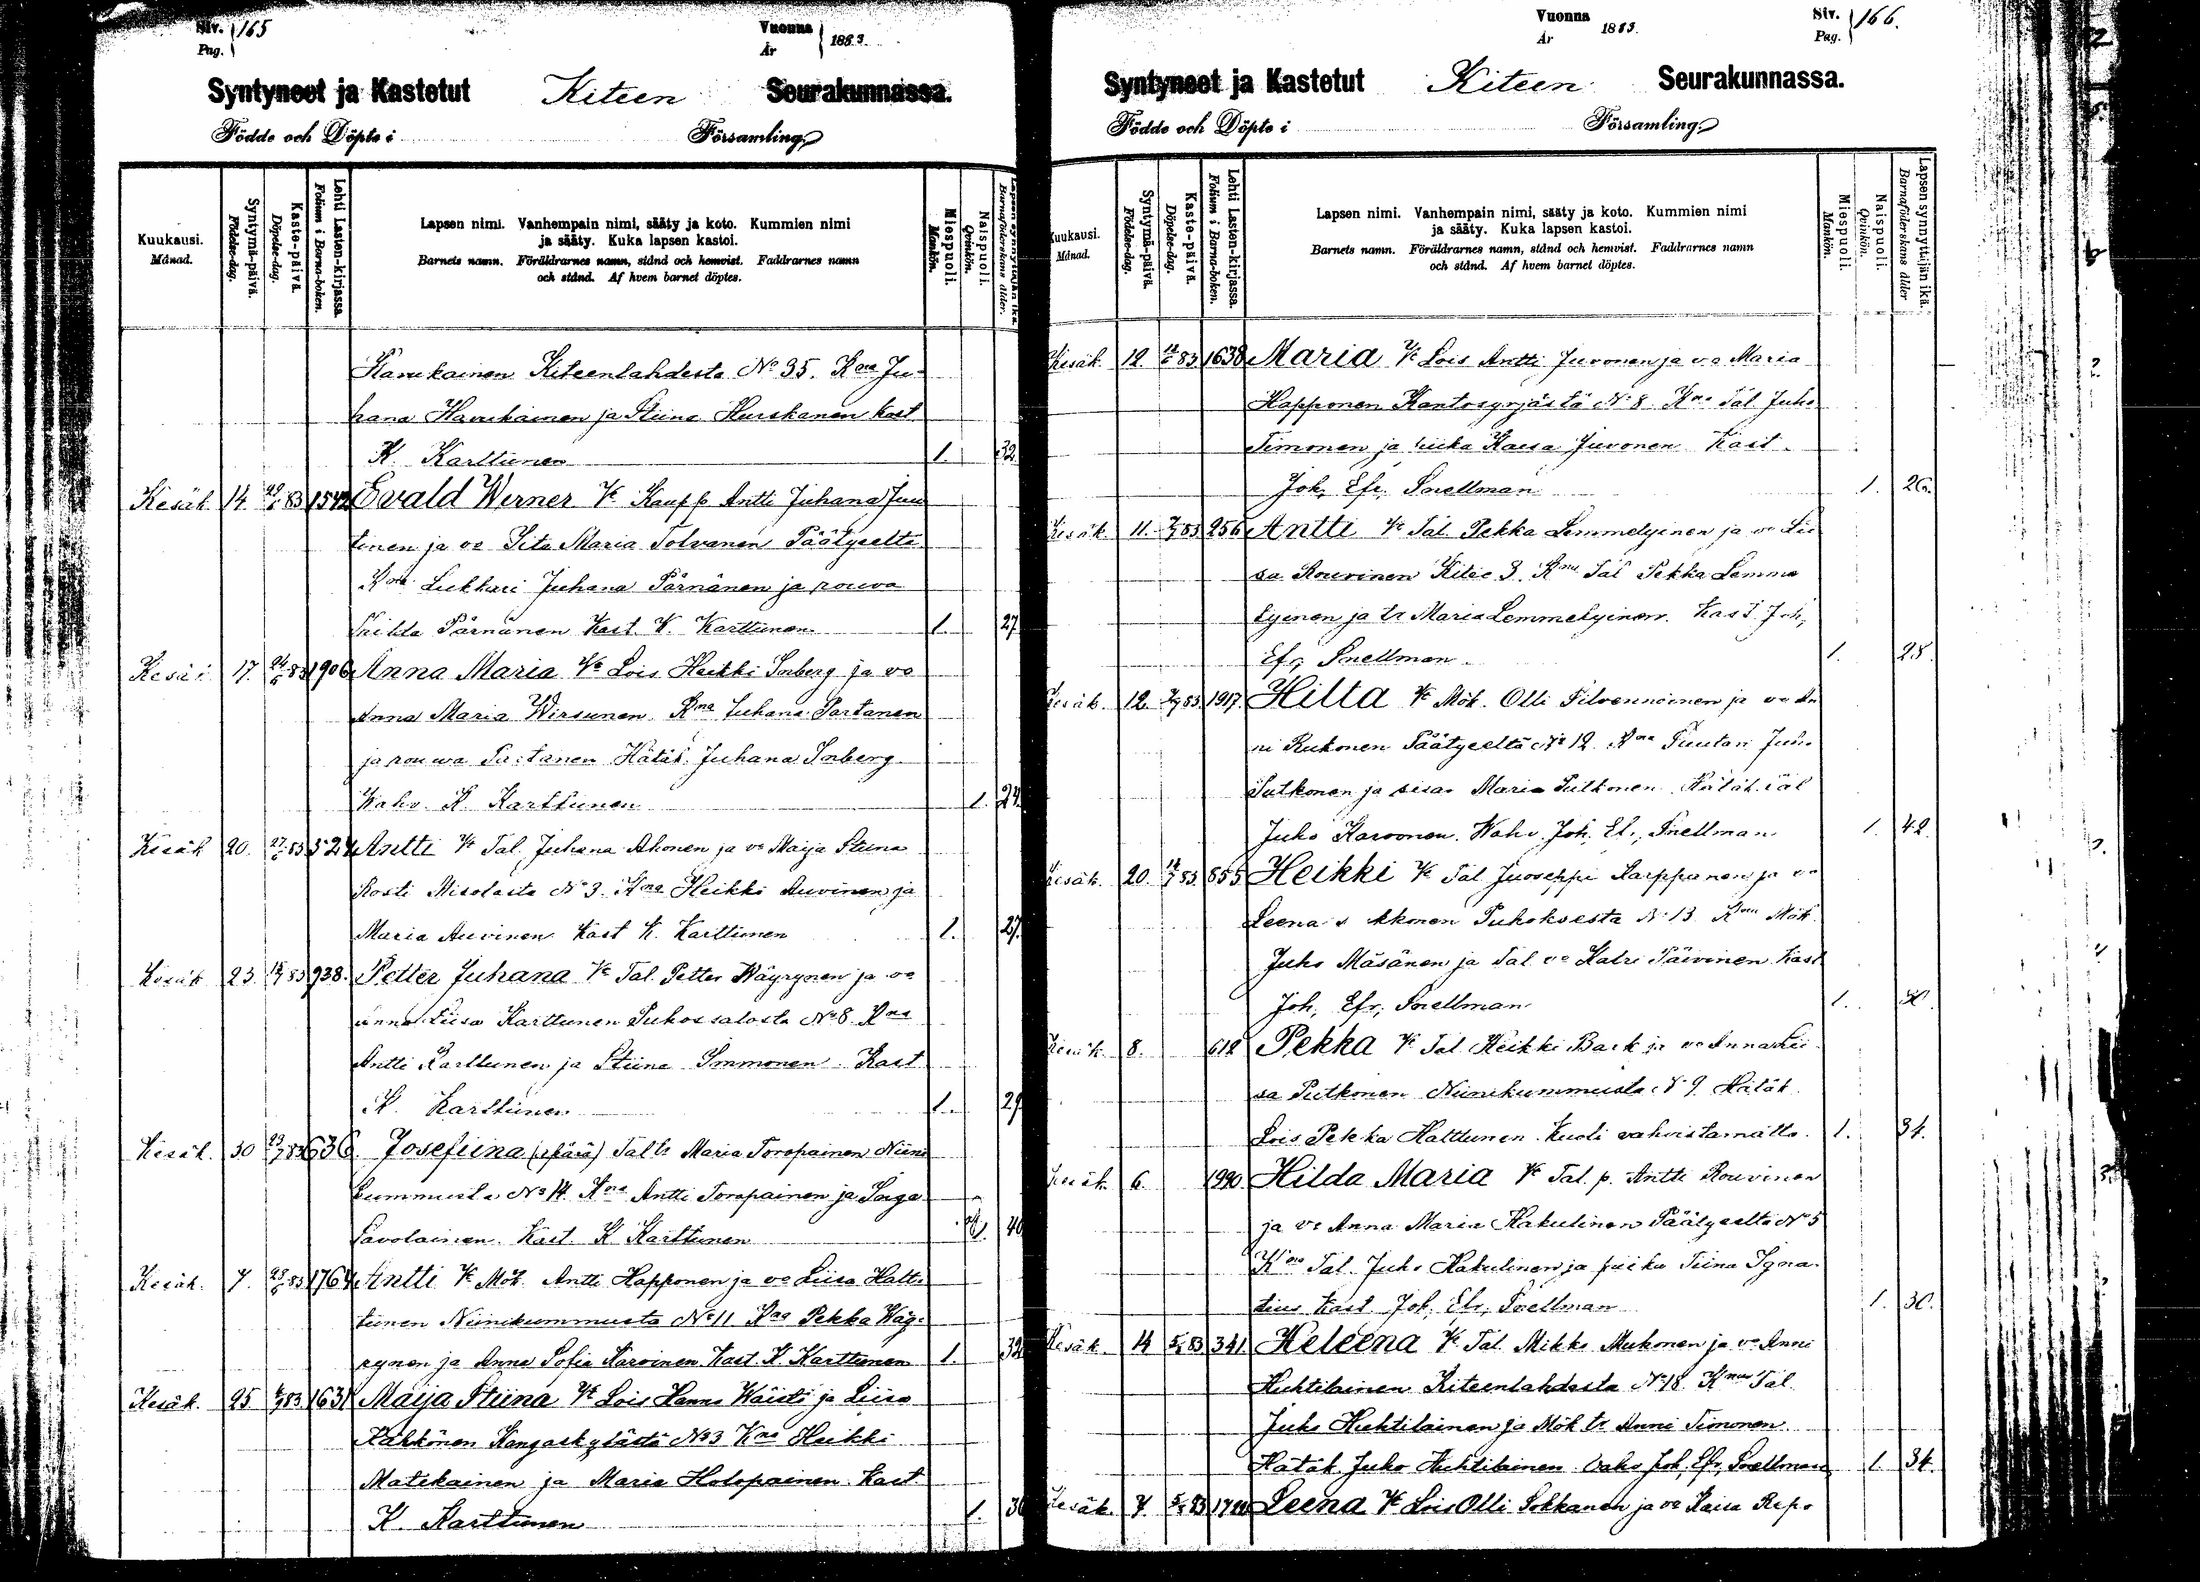 Siv. Pag. 165
Vuonna År 1883.
Syntyneet ja Kastetut Kiteen Seurakunnassa.
Födde och Döpte i Församling
Kuukausi. Månad.
Syntymä-päivä. Födelse-dag.
Kaste-päivä. Döpelse-dag.
Lehti Lasten-kirjassa. Folium i Barna-boken.
Lapsen nimi. Vanhempain nimi, sääty ja koto. Kummien nimi
ja sääty. Kuka lapsen kastoi.
Barnets namn. Föräldrarnes namn, stånd och hemvist. Faddrarnes namn
och stånd. Af hvem barnet döptes.
Miespuoli. Mankön.
Naispuoli. Qvinkön.
Lapsen synnyttäjän ikä. Barnaföderskans ålder.
Kiteenlahdesta No 35. Kna Ju-
hana Havukainen ja Stiina Hurskanen Kast
K. Karttunen 1. 32
Kesäk. 14. 83 1542 Evald Werner Vt Kaupp Antti Juhana Juu
tinen ja vo Maria Tolvanen Päätyeeltä
Kna Lukkari Juhana Pärnänen ja rouva
Hilda Pärnänen Kast. K. Karttunen 1. 27
17. 83 1906 Anna Maria Vt Lois Heikki Inberg ja vo
Anna Maria Wirsunen Kna Juhana Partanen
ja rouwa Partanen Hätäk. Juhana Inberg
Wahv. K. Karttunen 1. 24
Kesäk 20. 83 524 Antti Vt Tal. Juhana Ahonen ja vo Maija Stiina
Kosti Misolasta No 3. Kna Heikki Auvinen ja
Maria Auvinen Kast K. Karttunen 1. 27.
Kesäk 23. 83 938. Petter Juhana Vt Tal. Petter Wäyrynen ja vo
Anna Liisa Karttunen Puhossalosta No 8 Kna
Antti Karttunen ja Stiina Immonen Kast
K. Karttunen 1. 29
Kesäk. 30 83 636 Josefiina (äpärä) Tal tr Maria Toropainen Niini
kummusta No 14. Kna Antti Toropainen ja
Savolainen. Kast. K Karttunen 1. 40
Kesäk. 7. 83 1764 Antti Vt Mök. Antti Happonen ja vo Liisa Hatt-
tunen Niinikummusta No 11 Kna Pekka Wäy-
rynen ja Anna Sofia Karvinen Kast. K Karttunen 1. 32
Kesäk. 25 83 1631 Maija Stiina Vt Lois Hannu Wäistö ja Liisa
Kähkönen Kangaskylästä No 3 Kna Heikki
Matikainen ja Maria Holopainen. Kast.
K. Karttunen 1. 36
Vuonna År 1883.
Siv. Pag. 166.
Syntyneet ja Kastetut Kiteen Seurakunnassa.
Födde och Döpte i Församling
Kuukausi. Månad.
Syntymä-päivä. Födelse-dag.
Kaste-päivä. Döpelse-dag.
Lehti Lasten-kirjassa. Folium i Barna-boken.
Lapsen nimi. Vanhempain nimi, sääty ja koto. Kummien nimi
ja sääty. Kuka lapsen kastoi.
Barnets namn. Föräldrarnes namn, stånd och hemvist. Faddrarnes namn
och stånd. Af hvem barnet döptes.
Miespuoli. Mankön.
Naispuoli. Qvinkön.
Lapsen synnyttäjän ikä. Barnaföderskans ålder
Kesäk. 12. 83 1638 Maria Vt Lois Antti Juvonen ja vo Maria
Happonen Kantosyrjästä No 8 Kna Tal. Juho
Timonen ja Kaisa Juvonen Kast.
Joh. Efr. Snellman 1. 26.
Kesäk. 11. 83 256 Antti Vt Tal. Pekka Lemmetyinen ja vo Lii
sa Rouvinen Kitee 3. Kna Tal Pekka Lemme
tyinen ja tr Maria Lemmetyinen. Kast. Joh,
Efr, Snellman. 1. 28.
Kesäk. 12. 83. 1917. Hilta Vt Mök. Olli Silvennoinen ja vo An
ni Kukonen Päätyeeltä No 12. Kna Juho
Putkonen ja Maria Putkonen Hätäk. Tal
Juho Karvonen. Wahv. Joh. Efr, Snellman 1. 42.
Kesäk. 20. 83. 855 Heikki Vt Tal Juoseppi Karppanen ja vo
Leena Puhoksesta No 13 Kna Mök.
Juho Mäsänen ja Tal. vo Katri Päivinen Kast
Joh, Efr, Snellman 1.
Kesäk. 8. 612 Pekka Vt Tal. Heikki Back ja vo Anna Lii-
sa Putkonen Niinikummusta No 9. Hätäk.
Lois Pekka Hattunen. Kuoli vahvistamatta. 1. 34.
Kesäk. 6. 1990 Hilda Maria Vt Tal. p. Antti Rouvinen
ja vo Anna Maria Kakulinen Päätyeeltä No 5
Kna Tal. Juho Kakulinen ja Tiina Igna-
tius Kast Joh, Efr, Snellman 1. 30.
Kesäk. 14 83 341 Heleena Vt Tal. Mikko Mukonen ja vo Anni
Huhtilainen Kiteenlahdesta No 18. Kna Tal.
Juho Huhtilainen ja Mök tr Anni Timonen.
Hätäk. Juho Huhtilainen Vahv Joh. Efr, Snellman 1. 34.
Kesäk. 7. 83 Leena Vt Lois Olli Sokkanen ja vo Kaisa Repo